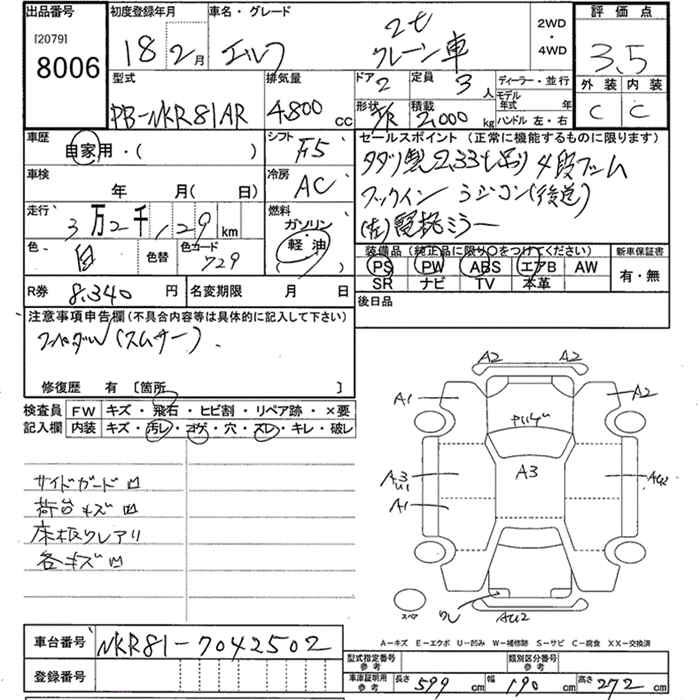 出品番号 初度登録年月 車名・グレード 評価点
[2079]
8006
18 2月 エルフ 2t クレーン車 2WD・4WD 3.5
型式 排気量 ドア 定員 ディーラー・並行 外装 内装
PB-NKR81AR 4,800 CC 2 3人 モデル年式 年 C C
形状 積載 2,000kg ハンドル 左・右
車歴 自家用・( ) シフト F5 セールスポイント (正常に機能するものに限ります)
タダノ製2.33t吊り 4段ブーム
フックイン ラジコン(後送)
(左)電格ミラー
車検 年 月( 日) 冷房 AC
走行 3万2千,129km 燃料 ガソリン・軽油
色 白 色替 色カード 729
装備品 (純正品に限り○をつけてください) 新車保証書
PS PW ABS エアB AW 有・無
SR ナビ TV 本革
R券 8,340円 名変期限 月 日 後日品
注意事項申告欄(不具合内容等は具体的に記入して下さい)
2ペダル(スムサー)
修復歴 有 [箇所 ]
検査員記入欄 FW キズ・飛石・ヒビ割・リペア跡・×要
内装 キズ・汚レ・コゲ・穴・スレ・キレ・破レ
サイドガード凹
荷台キズ凹
床板ワレアリ
各キズ凹
A2 A2
A1 A2
A3
A3
U1
A1
AU2
ワレ AU2
スペア
A-キズ E-エクボ U-凹み W-補修跡 S-サビ C-腐食 XX-交換済
車台番号 NKR81-7042502
登録番号
型式指定番号参考 類別区分番号参考
車庫証明用参考 長さ 599cm 幅 190cm 高さ 272cm